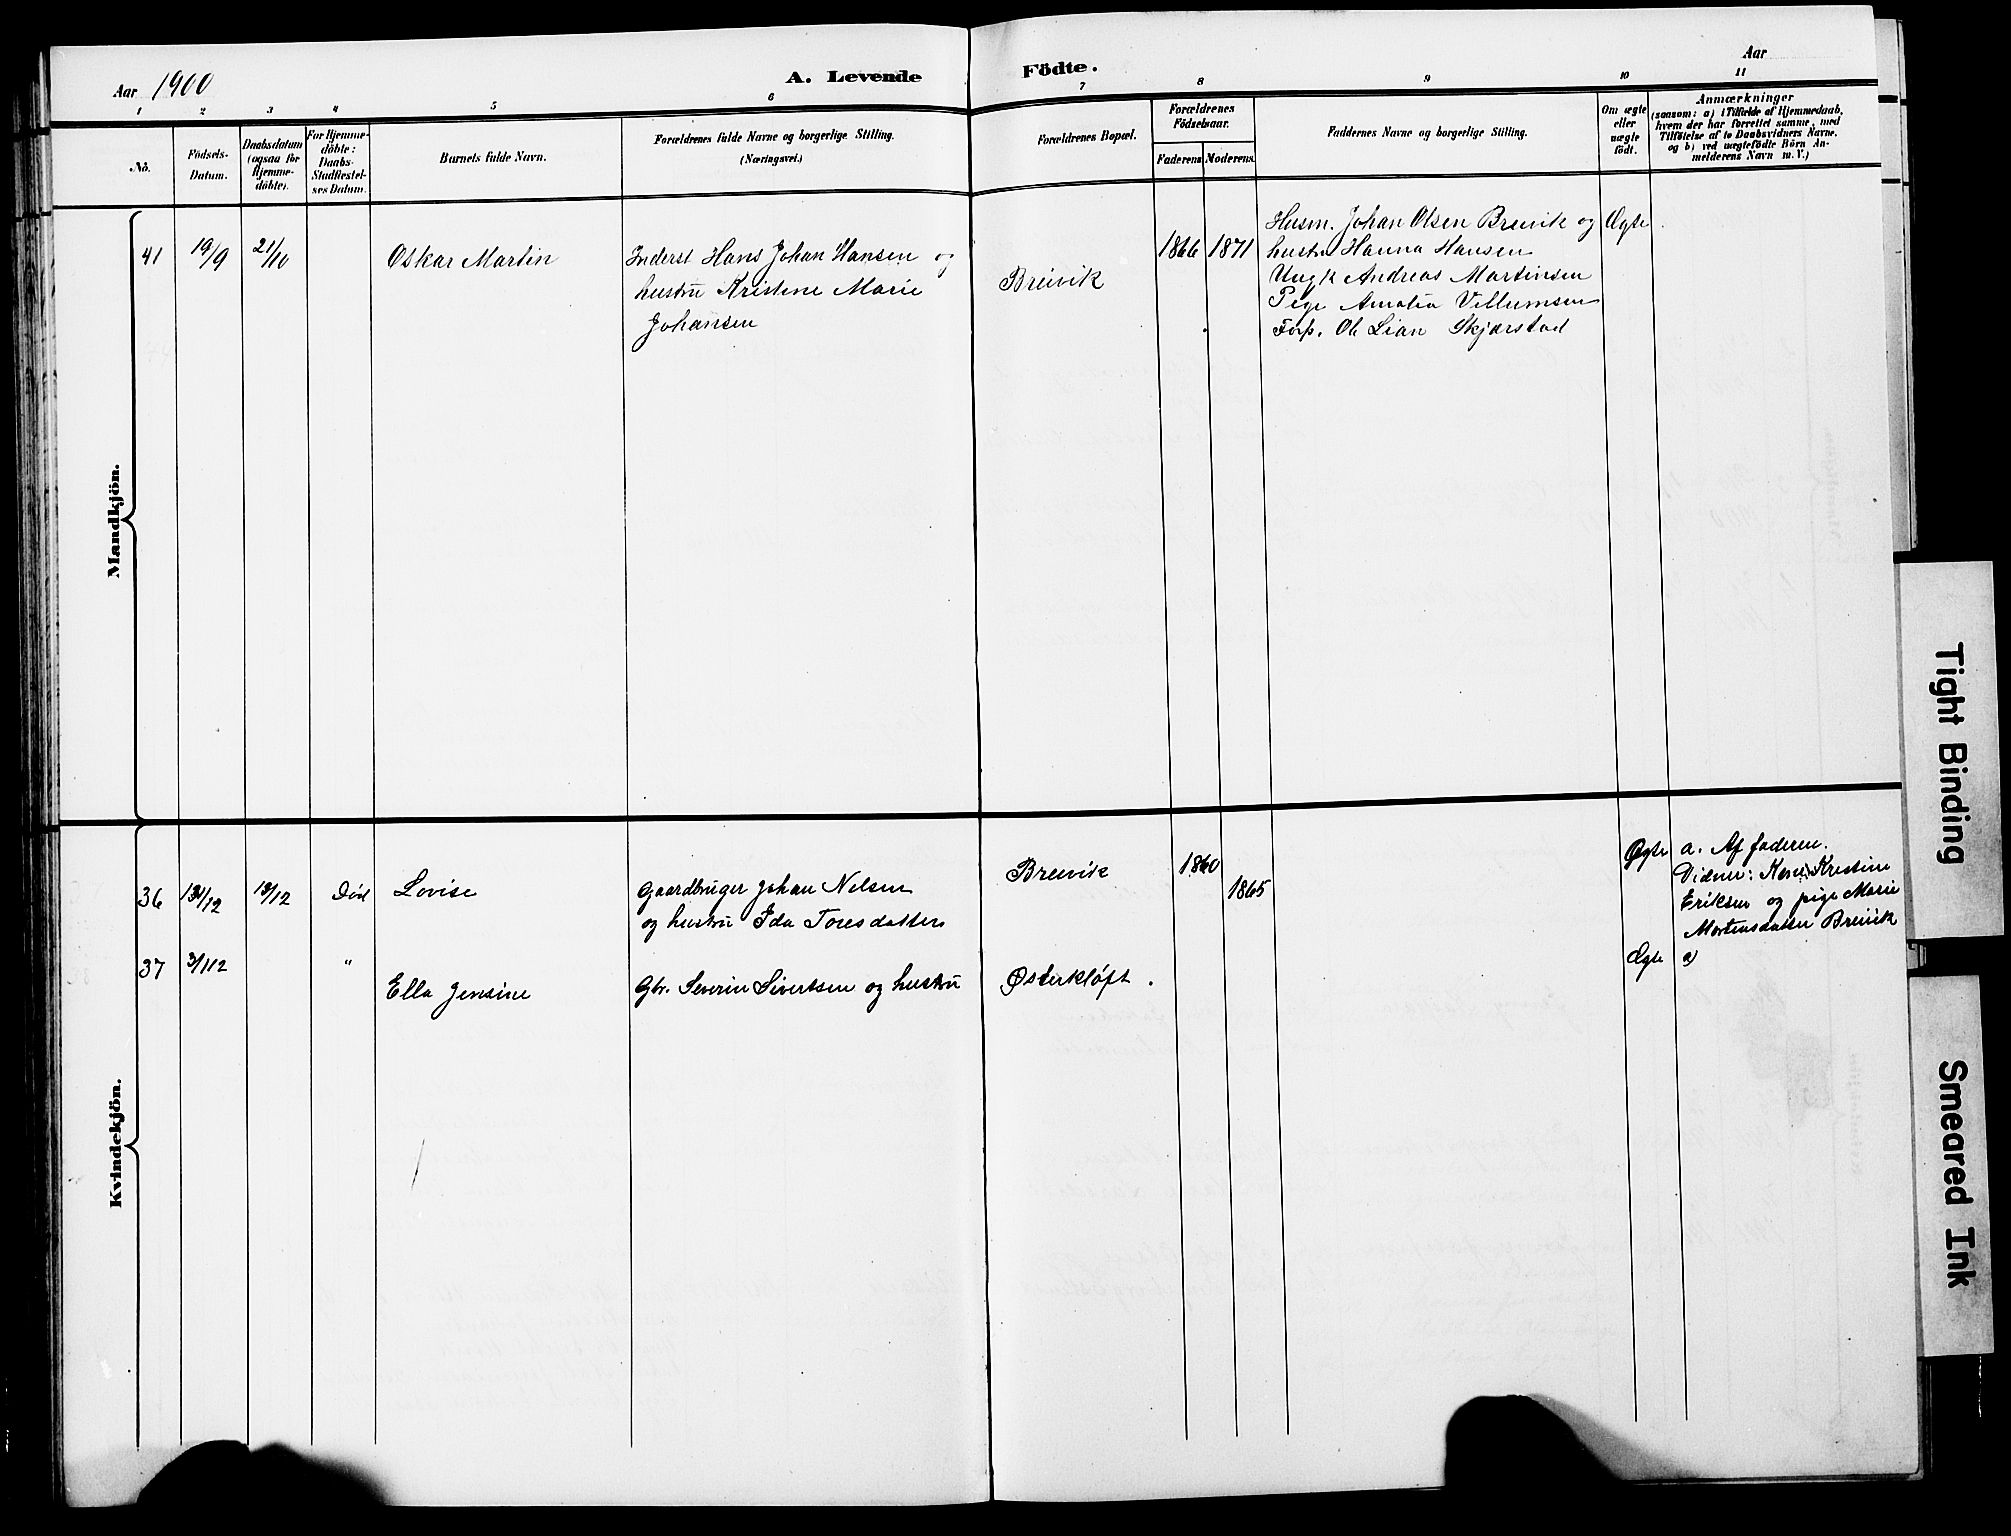 Aar 1900
A. Levende Födte.
Aar
1 2 3 4 5 6 7 8 9 10 11
No.
Födsels-
Datum.
Daabsdatum
(ogsaa for
Hjemme-
döbte).
For Hjemme-
döbte:
Daabs-
Stadfæstel-
ses Datum.
Barnets fulde Navn.
Forældrenes fulde Navne og borgerlige Stilling.
(Næringsvei.)
Forældrenes Bopæl.
Forældrenes
Födselsaar.
Faderens Moderens.
Faddernes Navne og borgerlige Stilling.
Om ægte
eller
uægte
födt.
Anmærkninger
(saasom: a) i Tilfælde af Hjemmedaab,
hvem der har forrettet samme, med
Tilföielse af to Daabsvidners Navne,
og b) ved uægtefödte Börn An-
melderens Navn m. V.)
Mandkjön.
41 19/9 21/10
Oskar Martin
Inderst Hans Johan Hansen og
hustru Kristine Marie
Johansen
Breivik
1866 1871
Husm. Johan Olsen Breivik og
hustru Hanna Hansen
Ungk Andreas Martinsen
Pige Amalia Villumsen
Forp. Ole Lian Skjærstad
Ægte.
Kvindekjön.
36 /12 13/12 Död
Lovise
Gaardbruger Johan Nelsen
og hustru Ida Toresdatter
Breivik
1860 1865
Ægte
a. Af faderen.
Vidner: Kristine
Eriksen og pige Marie
Mortensdatter Breivik
37 3/112 "
Ella Jensine
Gbr. Severin Sivertsen og hustru
Østerkløft.
Ægte a)
Tight Binding
Smeared Ink